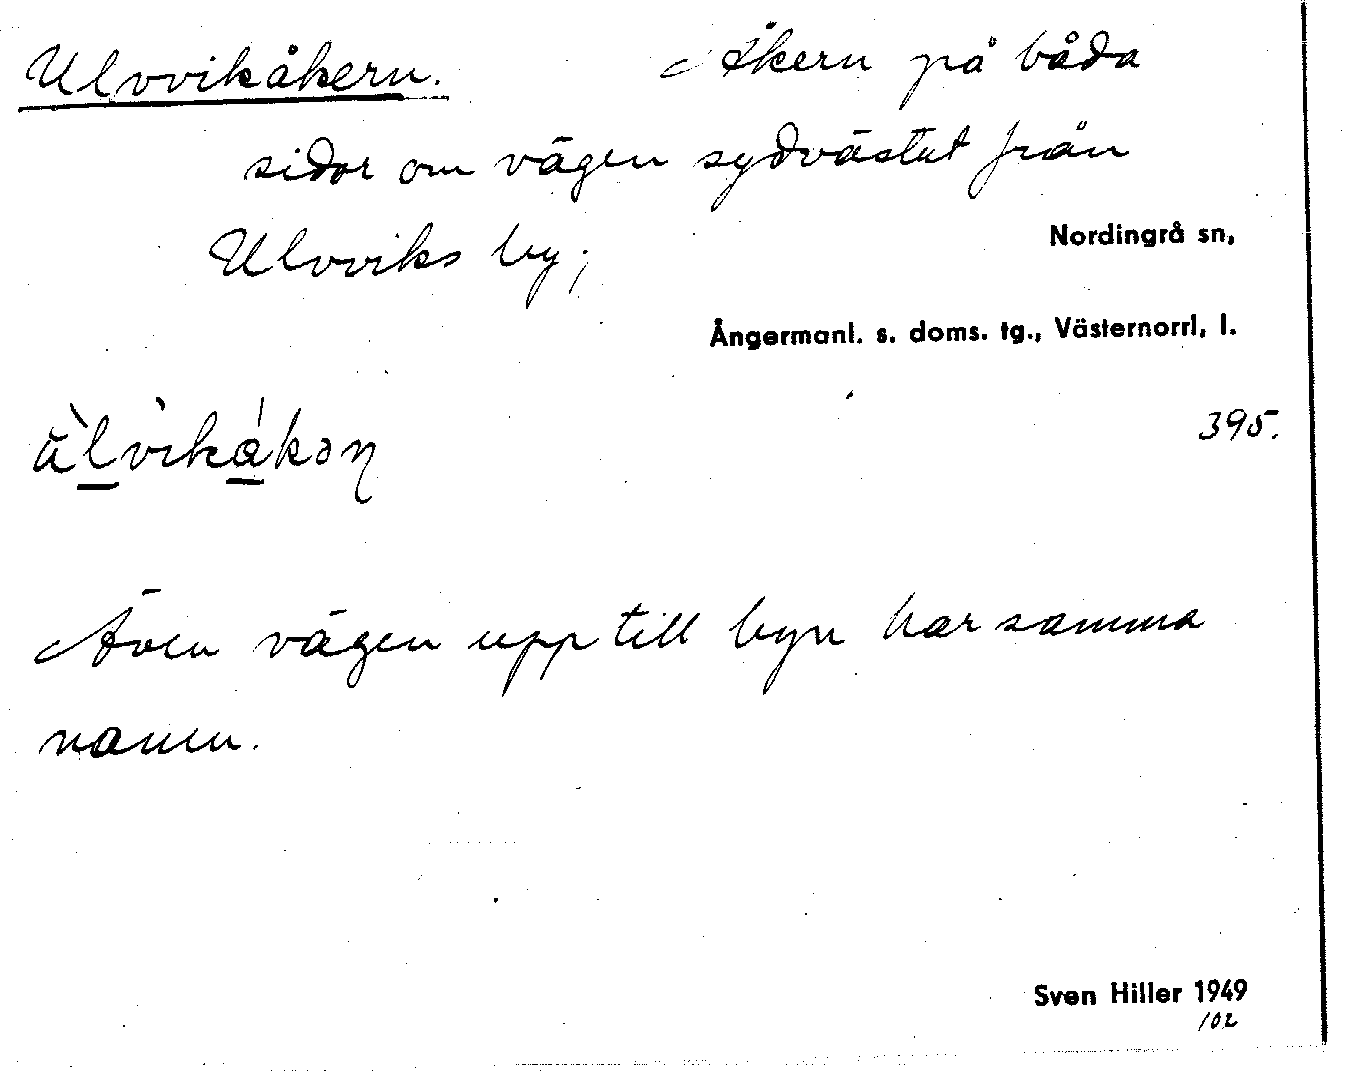 Ulvvikåkern. Åkern på båda
sidor om vägen sydvästut från
Ulvviks by;
Nordingrå sn,
Ångermanl. s. doms. tg., Västernorrl, l.
395.
Även vägen upp till byn har samma
namn.
Sven Hiller 1949
102